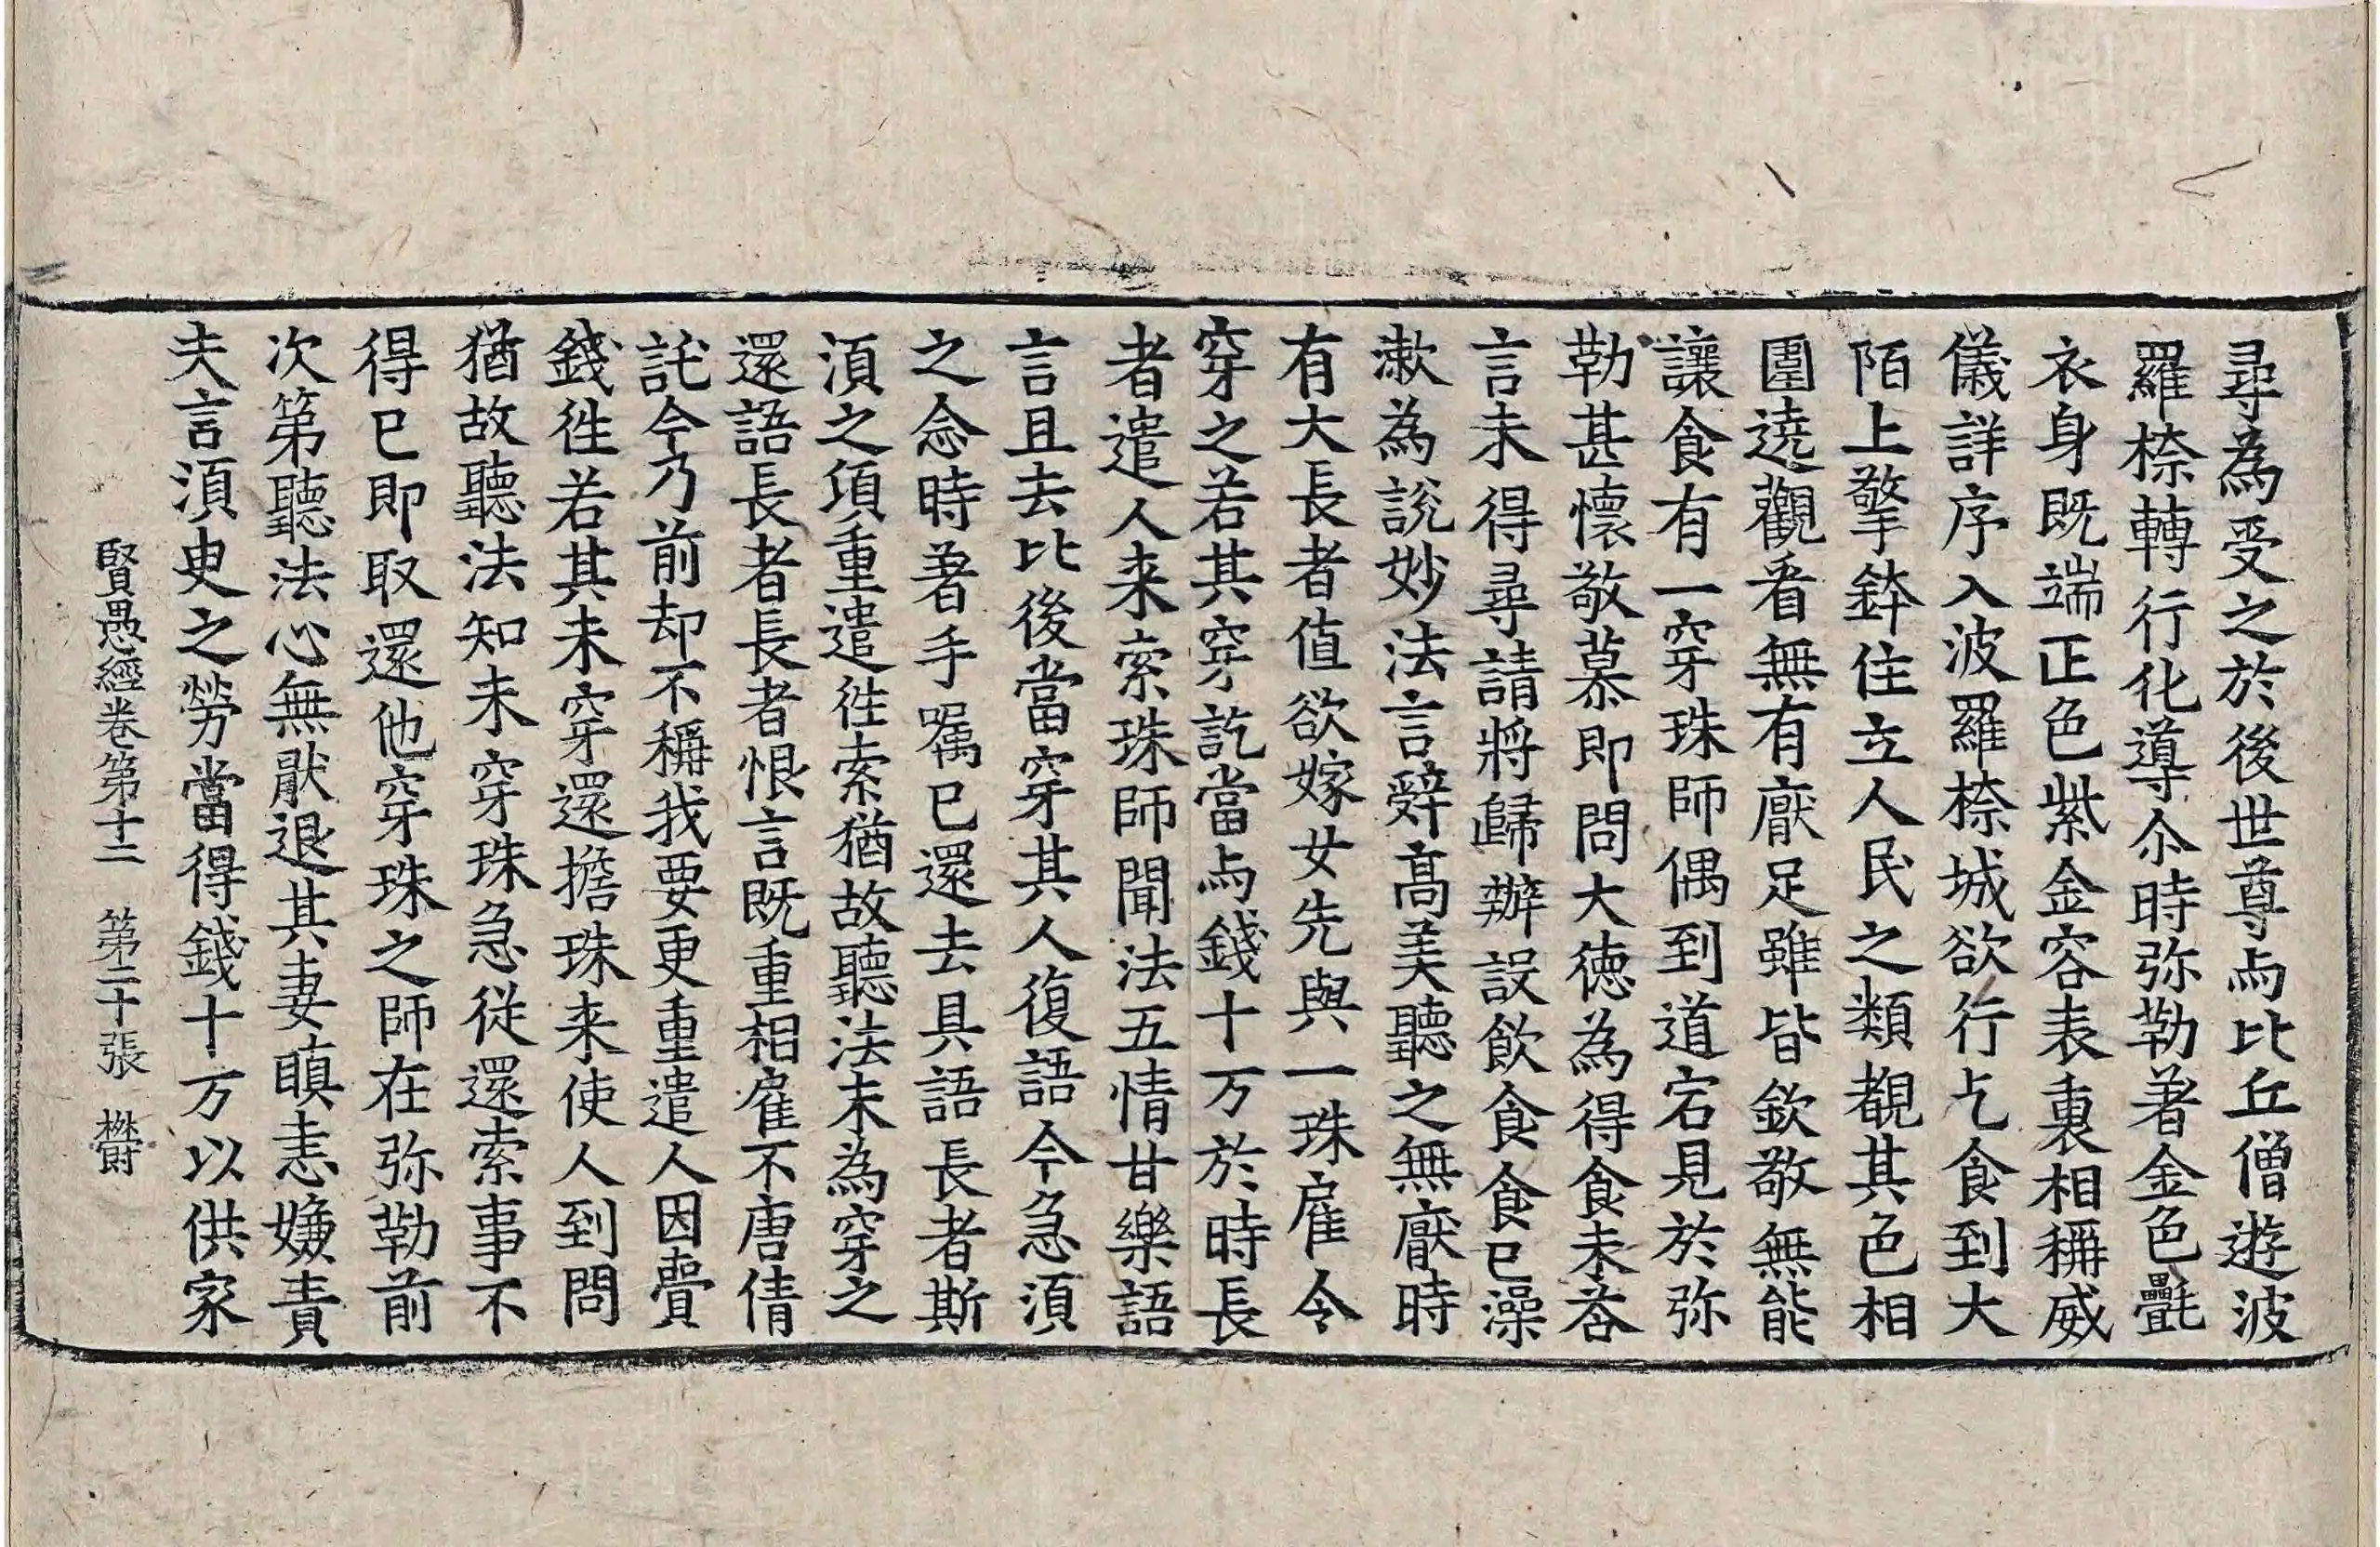 尋為受之於後世尊与比丘僧遊波
羅㮈轉行化導尒時弥勒著金色㲲
衣身既端正色紫金容表裏相稱威
儀詳序入波羅㮈城欲行乞食到大
陌上擎鉢住立人民之類覩其色相
圍遶觀看無有厭足雖皆欽敬無能
讓食有一穿珠師偶到道宕見於弥
勒甚懷敬慕即問大德為得食未荅
言未得尋請將歸辦設飲食食已澡
漱為說妙法言辭高美聽之無厭時
有大長者值欲嫁女先與一珠雇令
穿之若其穿訖當与錢十万於時長
者遣人来索珠師聞法五情甘樂語
言且去比後當穿其人復語今急湏
之念時著手囑已還去具語長者斯
湏之項重遣徃索猶故聽法未為穿之
還語長者長者恨言既重相雇不唐倩
託今乃前却不稱我要更重遣人因賷
錢徃若其未穿還擔珠来使人到問
猶故聽法知未穿珠急從還索事不
得已即取還他穿珠之師在弥勒前
次第聽法心無猒退其妻瞋恚嫌責
夫言湏臾之勞當得錢十万以供家
賢愚經卷第十二　第二十張　欝